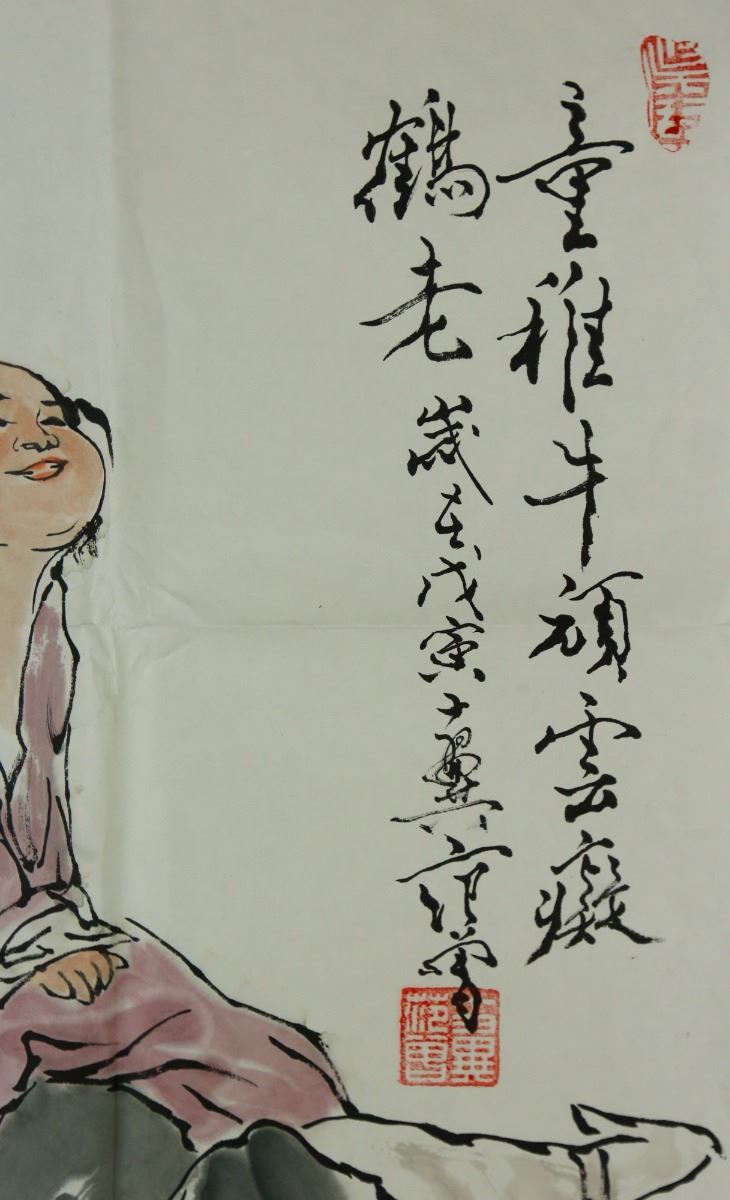 童稚牛頑雲癡
鶴老歲在戊寅十翼范曾